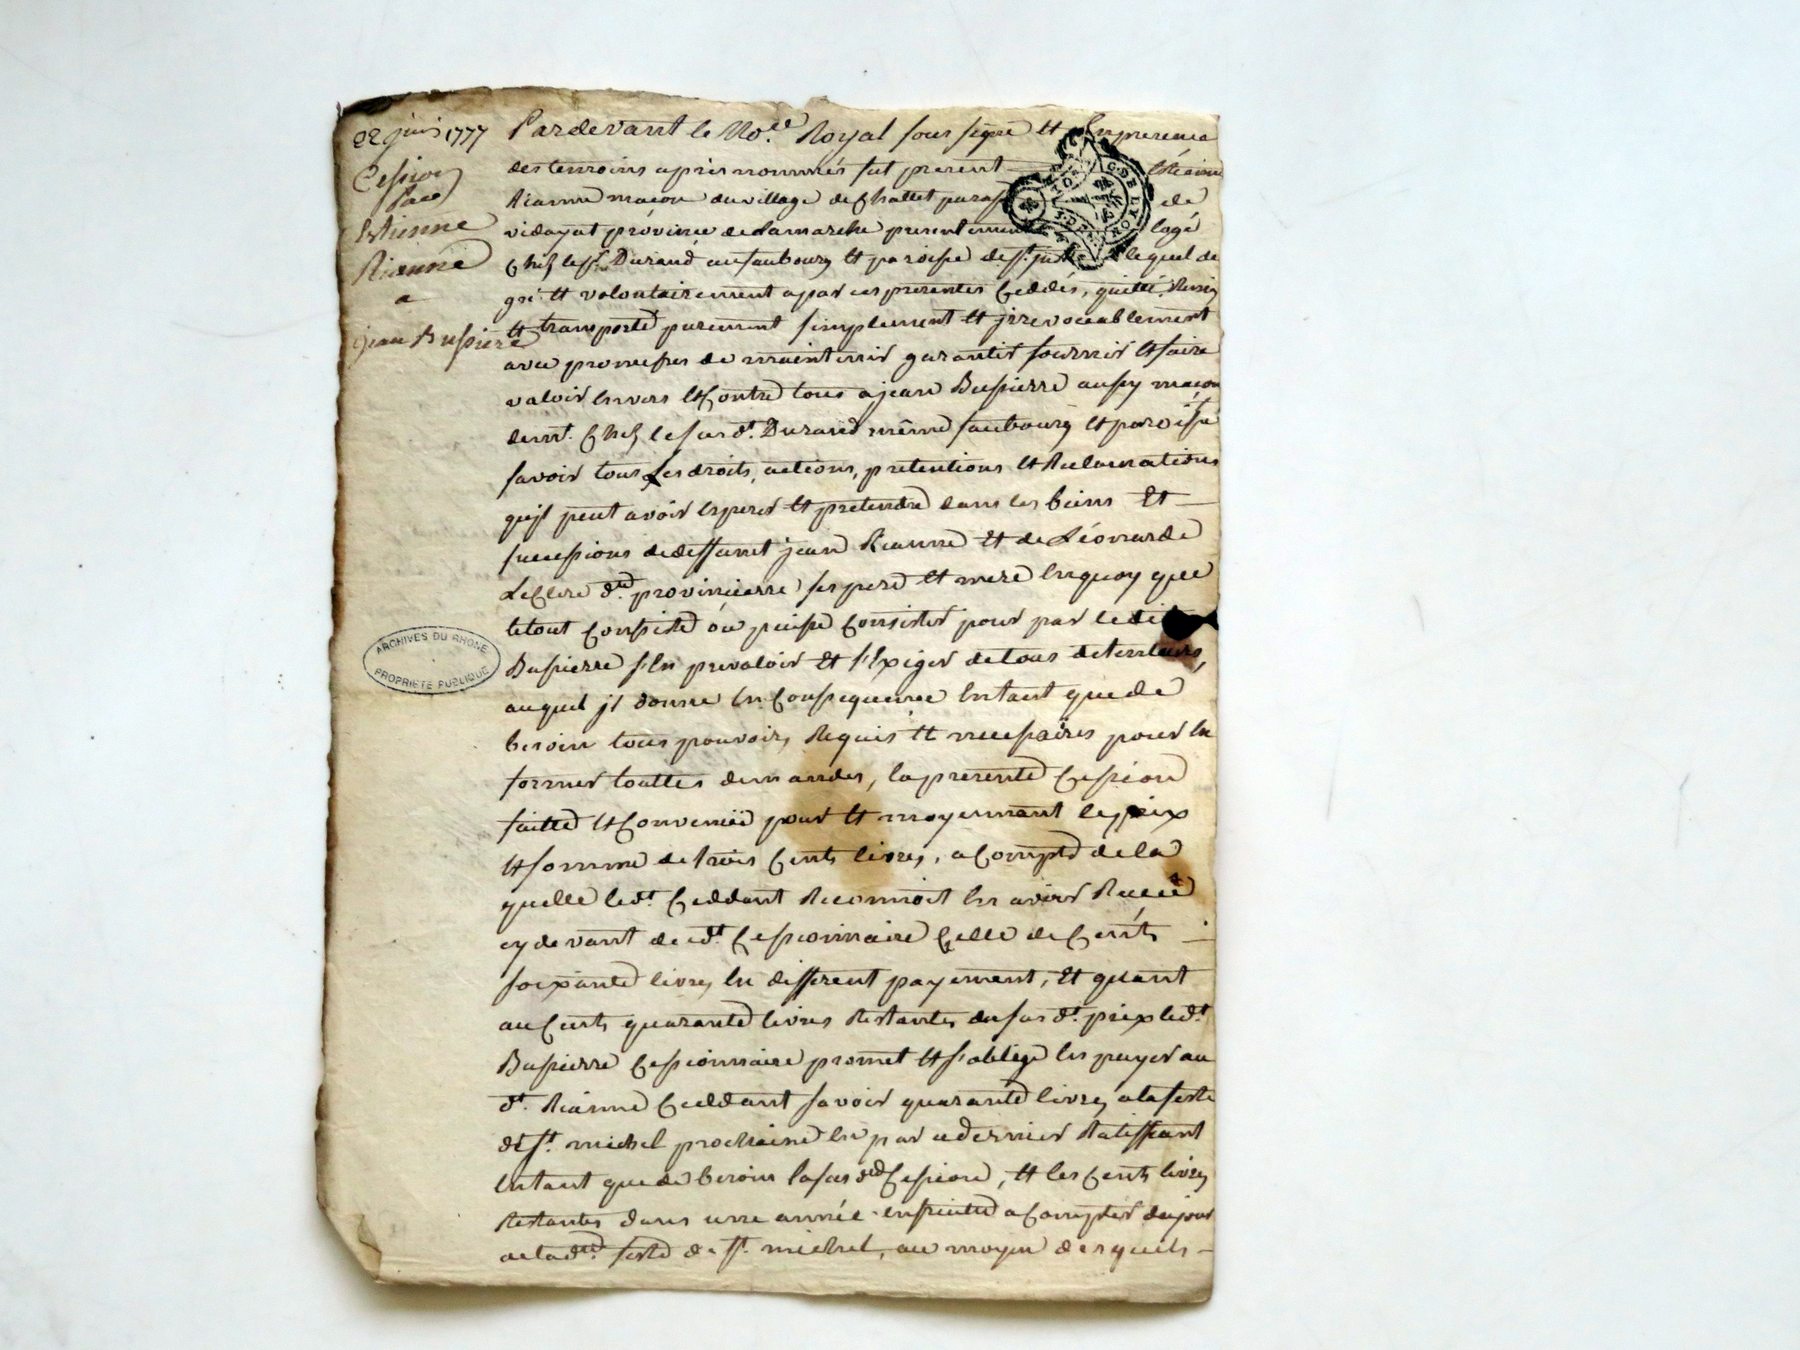 22 juin 1777
Cession
par
Estienne
Rianne
a
jean Bussierre
Pardevant le No.re Royal soussigné Et En presence
des temoins apres nommés fut present Etienne
Rianne maçon du village de Chattet paroisse de
vidayat province de Lamarche presentement logé
chez le sr. Durand au faubourg Et paroisse de st. just lequel de
gré Et volontairement a par ces presentes Ceddés, quitté, Remis
Et transporté purement simplement Et jrrevocablement
avec promesses de maintenir garantir fournir Et faire
valoir Envers Et Contre tous a jean Bussierre aussy maçon
demt. Chez le susdt. Durand même faubourg Et paroisse
savoir tous les droits, actions, pretentions Et Reclamations
qu'jl peut avoir Esperer Et pretendre dans les biens Et
successions de deffunt jean Rianne Et de Léonarde
LeClere dte. provincierre ses pere Et mere Enquoy que
le tout Consiste ou puisse Consister pour par ledit
Bussierre s'En prevaloir Et s'Exiger de tous detenteurs,
auquel jl donne En Consequence Entant que de
besoin tous pouvoirs Requis Et necessaires pour En
former touttes demandes, la presente Cession
faitte Et Convenüe pour Et moyennant le prix
Et somme de trois Cents livres, a Compte de la
quelle ledt. Ceddant Reconnoit En avoir Receu
cy devant dudt. Cessionnaire Celle de Cents
soixante livres En different payement, Et quant
au Cents quarante livres Restantes du susdt. prix ledt.
Bussierre Cessionnaire promet Et s'oblige En payer au
dt. Rianne Ceddant savoir quarante livres a la feste
de st. michel prochaine En par ce dernier Ratiffiant
Entant que de besoin la susdte Cession, Et les Cents livres
Restantes dans une année ensuitte a Compter du jour
de ladte. feste de st. michel, au moyen desquels
ARCHIVES DU RHONE
PROPRIETE PUBLIQUE